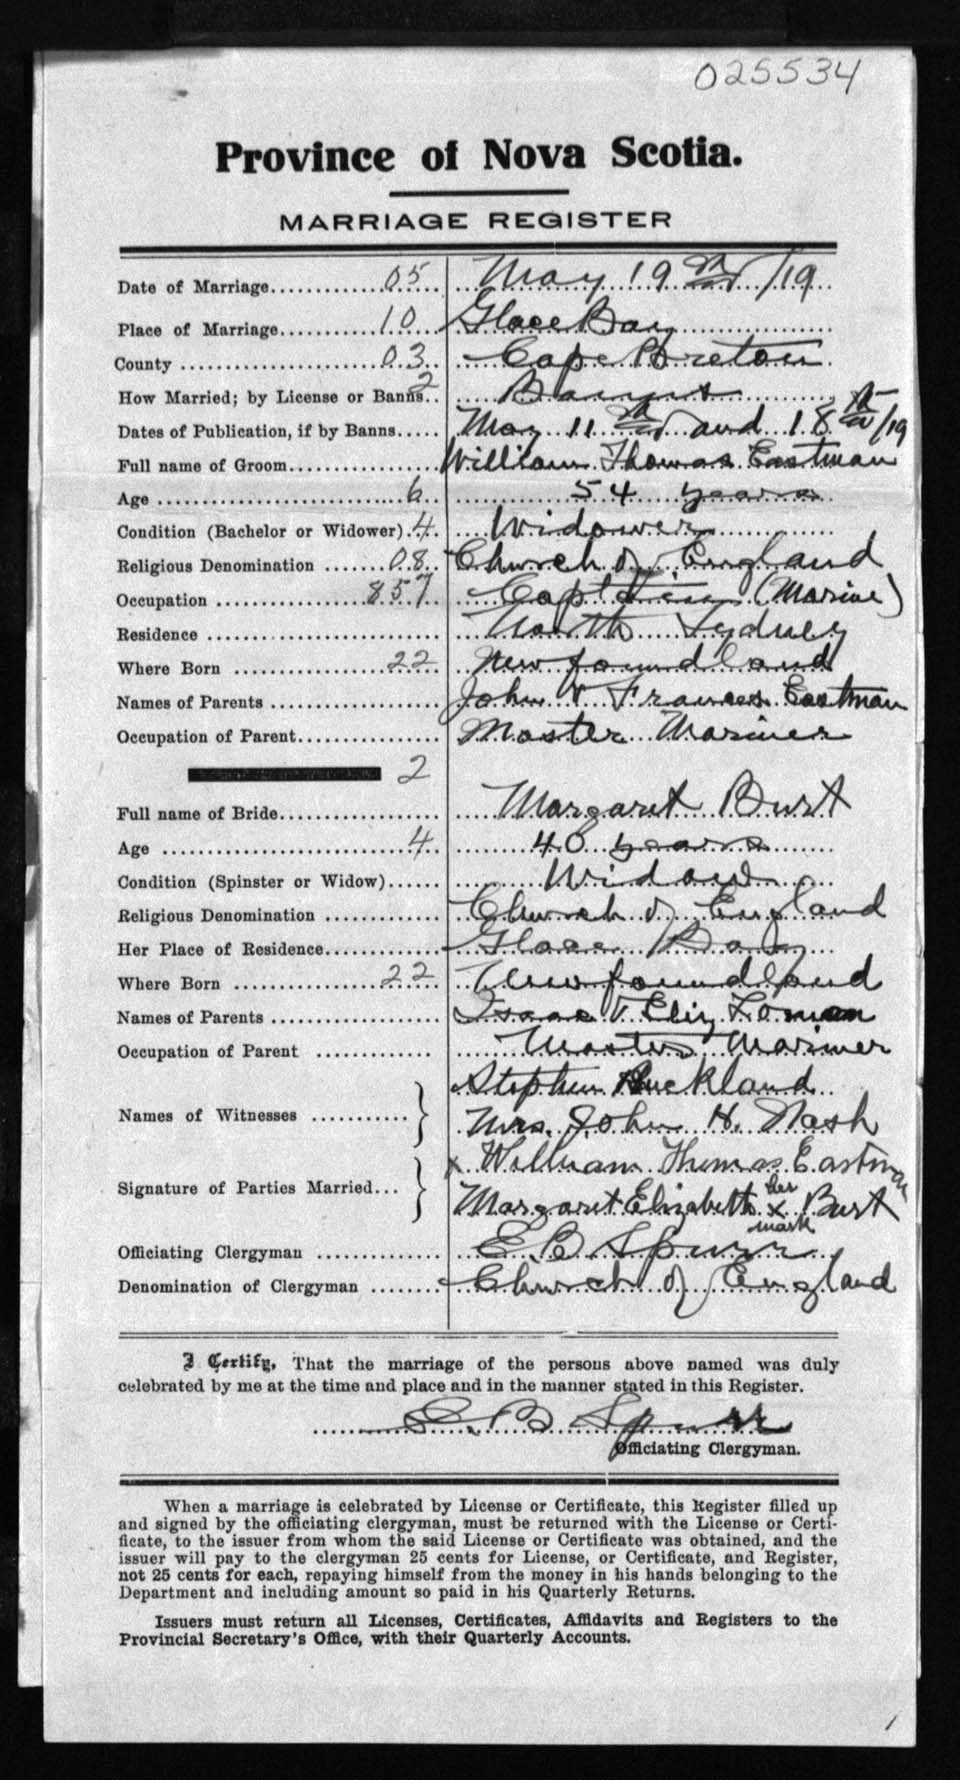 025534
Province of Nova Scotia.
MARRIAGE REGISTER
Date of Marriage 05 May 19th /19
Place of Marriage 10 Glace Bay
County 03 Cape Breton
How Married; by License or Banns 2 Banns
Dates of Publication, if by Banns May 11th and 18th/19
Full name of Groom William Thomas Eastman
Age 6 54 years
Condition (Bachelor or Widower) 4 Widower
Religious Denomination 08 Church of England
Occupation 857 Captain (Marine)
Residence North Sydney
Where Born 22 Newfoundland
Names of Parents John & Frances Eastman
Occupation of Parent Master Mariner
2
Full name of Bride Margaret Burt
Age 4 40 years
Condition (Spinster or Widow) Widow
Religious Denomination Church of England
Her Place of Residence Glace Bay
Where Born 22 Newfoundland
Names of Parents Isaac & Eliz
Occupation of Parent Master Mariner
Names of Witnesses Stephen Buckland
Mrs. John H. Nash
Signature of Parties Married x William Thomas Eastman
Margaret Elizabeth her x mark Burt
Officiating Clergyman E B Spurr
Denomination of Clergyman Church of England
I Certify, That the marriage of the persons above named was duly
celebrated by me at the time and place and in the manner stated in this Register.
E. B Spurr
Officiating Clergyman.
When a marriage is celebrated by License or Certificate, this Register filled up
and signed by the officiating clergyman, must be returned with the License or Certi-
ficate, to the issuer from whom the said License or Certificate was obtained, and the
issuer will pay to the clergyman 25 cents for License, or Certificate, and Register,
not 25 cents for each, repaying himself from the money in his hands belonging to the
Department and including amount so paid in his Quarterly Returns.
Issuers must return all Licenses, Certificates, Affidavits and Registers to the
Provincial Secretary's Office, with their Quarterly Accounts.
1